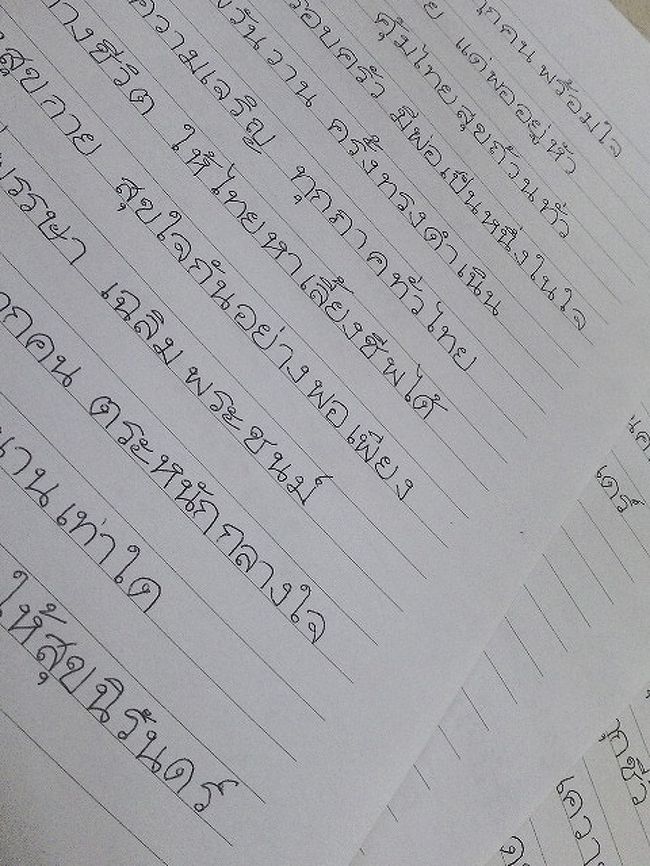 ทุกคน พร้อมใจ
แด่พ่ออยู่หัว
คุ้มไทย สุขถ้วนทั่ว
ครอบครัว มีพ่อเป็นหนึ่งในใจ
วันวาน ครั้งทรงดำเนิน
ความเจริญ ทุกภาคทั่วไทย
ทางชีวิต ให้ไทยหาเลี้ยงชีพได้
สุขกาย สุขใจกันอย่างพอเพียง
พรรษา เฉลิมพระชนม์
ทุกคน ตระหนักกลางใจ
นานเท่าใด
ให้สุขนิรันดร์